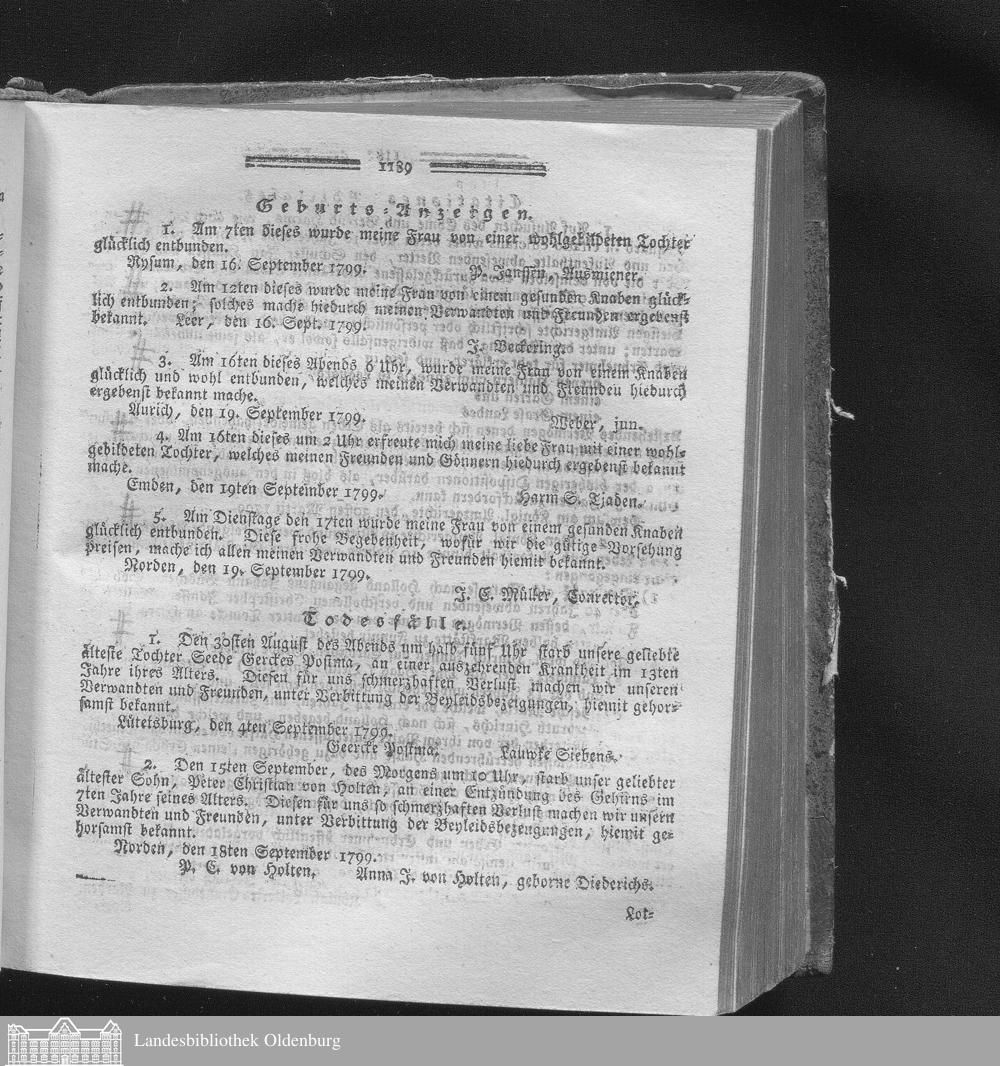 1189
Geburts-Anzeigen.
1. Am 7ten dieses wurde meine Frau von einer wohlgebildeten Tochter
glücklich entbunden.
Rysum, den 16. September 1799. P. Janssen, Ausmiener.
2. Am 12ten dieses wurde meine Frau von einem gesunden Knaben glück-
lich entbunden; solches mache hiedurch meinen Verwandten und Freunden ergebenst
bekannt. Leer, den 16. Sept. 1799.
J. Beckering.
3. Am 16ten dieses Abends 6 Uhr, wurde meine Frau von einem Knaben
glücklich und wohl entbunden, welches meinen Verwandten und Freunden hiedurch
ergebenst bekannt mache.
Aurich, den 19. September 1799. Weber, jun.
4. Am 16ten dieses um 2 Uhr erfreute mich meine liebe Frau mit einer wohl-
gebildeten Tochter, welches meinen Freunden und Gönnern hiedurch ergebenst bekannt
mache.
Emden, den 19ten September 1799. Harm S. Tjaden.
5. Am Dienstage den 17ten wurde meine Frau von einem gesunden Knaben
glücklich entbunden. Diese frohe Begebenheit, wofür wir die gütige Vorsehung
preisen, mache ich allen meinen Verwandten und Freunden hiemit bekannt.
Norden, den 19. September 1799.
J. E. Müller, Conrector.
Todesfälle.
1. Den 30sten August des Abends um halb fünf Uhr starb unsere geliebte
älteste Tochter Seede Gerckes Postma, an einer auszehrenden Krankheit im 13ten
Jahre ihres Alters. Diesen für uns schmerzhaften Verlust machen wir unseren
Verwandten und Freunden, unter Verbittung der Beyleidsbezeigungen, hiemit gehor-
samst bekannt.
Lütetsburg, den 4ten September 1799.
Geercke Postma. Lauwke Siebens.
2. Den 15ten September, des Morgens um 10 Uhr, starb unser geliebter
ältester Sohn, Peter Christian von Holten, an einer Entzündung des Gehirns im
7ten Jahre seines Alters. Diesen für uns so schmerzhaften Verlust machen wir unsern
Verwandten und Freunden, unter Verbittung der Beyleidsbezeugungen, hiemit ge-
horsamst bekannt.
Norden, den 18ten September 1799.
P. C. von Holten. Anna J. von Holten, geborne Diederichs.
Lot-
Landesbibliothek Oldenburg